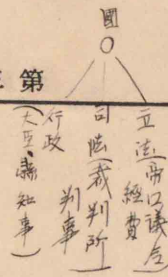 國
三第
立法(帝口議会)
経費
司法(裁判所)
判事
行政
(大臣、縣知事)